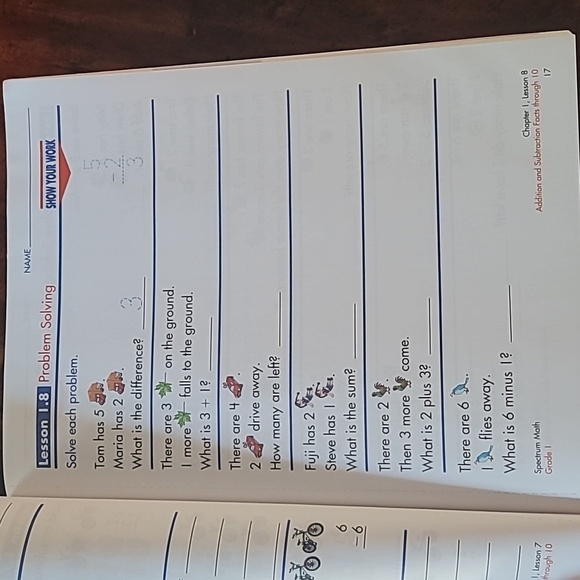 NAME
Lesson 1.8 Problem Solving
SHOW YOUR WORK
Solve each problem.
Tom has 5 .
Maria has 2 .
What is the difference? 3
5
- 2
3
There are 3 on the ground.
1 more falls to the ground.
What is 3 + 1?
There are 4 .
2 drive away.
How many are left?
Fuji has 2 .
Steve has 1 .
What is the sum?
There are 2 .
Then 3 more come.
What is 2 plus 3?
There are 6 .
1 flies away.
What is 6 minus 1?
Spectrum Math
Grade 1
Chapter 1, Lesson 8
Addition and Subtraction Facts through 10
17
6
- 6
Lesson 7
through 10